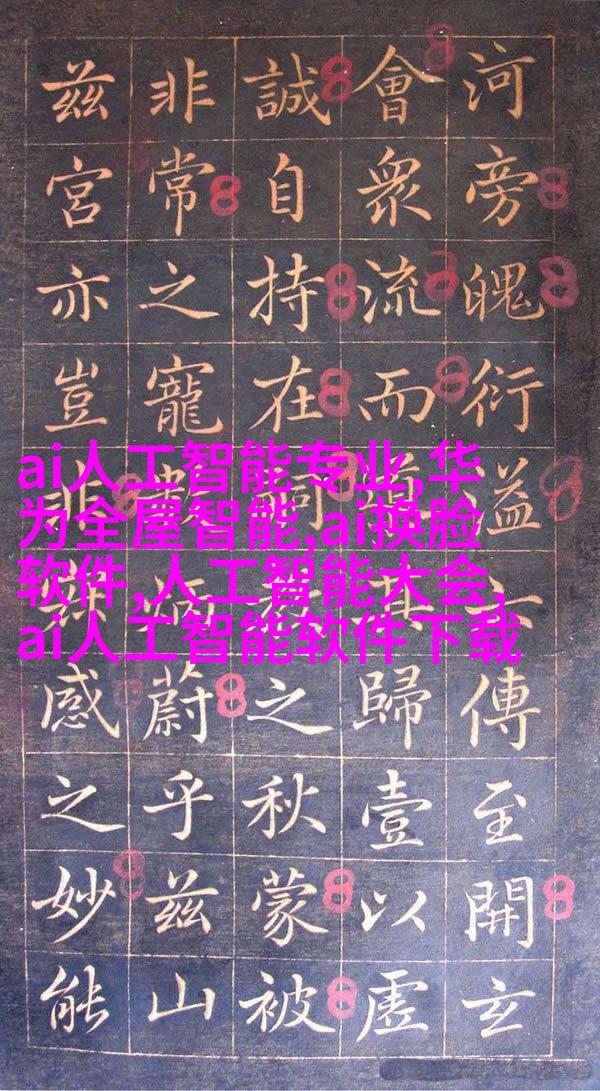 河旁魄衍溢六傳至開玄
會眾流而歸壹以虛
誠自持在之秋蒙被
非常之寵蔚乎茲山
茲宮亦豈非感之妙能
ai人工智能专业,华
为全屋智能,ai换脸
软件,人工智能大会,
ai人工智能软件下载